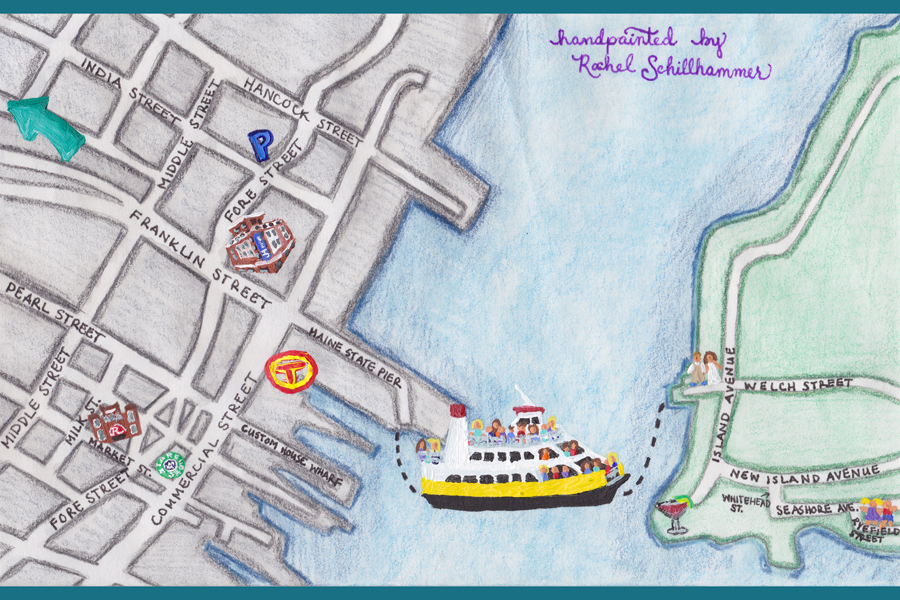 handpainted by
Rachel Schillhammer
INDIA STREET
MIDDLE STREET
HANCOCK STREET
P
FORE STREET
FRANKLIN STREET
PEARL STREET
HAINE STATE PIER
T
MIDDLE STREET
MILK ST.
R
MARKET ST.
COMMERCIAL STREET
CUSTOM HOUSE WHARF
FORE STREET
ISLAND AVENUE
WELCH STREET
NEW ISLAND AVENUE
WHITEHEAD
ST.
SEASHORE AVE.
PYEFIELD
STREET